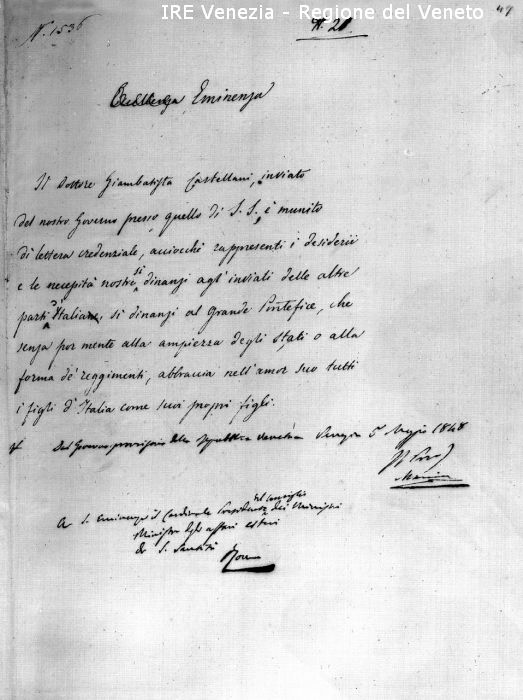 IRE Venezia - Regione del Veneto
N.° 1536
N. 20.
49
Eccellenza Eminenza
Il Dottore Giambatista Castellani, inviato
del nostro Governo presso quello di S. S., è munito
di lettera credenziale, acciocchè rappresenti i desiderii
e le necessità nostre sì dinanzi agl'inviati delle altre
parti d'Italia, sì dinanzi al Grande Pontefice, che
senza por mente alla ampiezza degli Stati o alla
forma de' reggimenti, abbraccia nell'amor suo tutti
i figli d'Italia come suoi propri figli.
Dal Governo provvisorio della Repubblica Veneta in Venezia 5 Maggio 1848
Il Pres
Manin
del consiglio
A S. Eminenza il Cardinale Presidente dei Ministri
Ministro degli affari esteri
di S. Santità
Roma